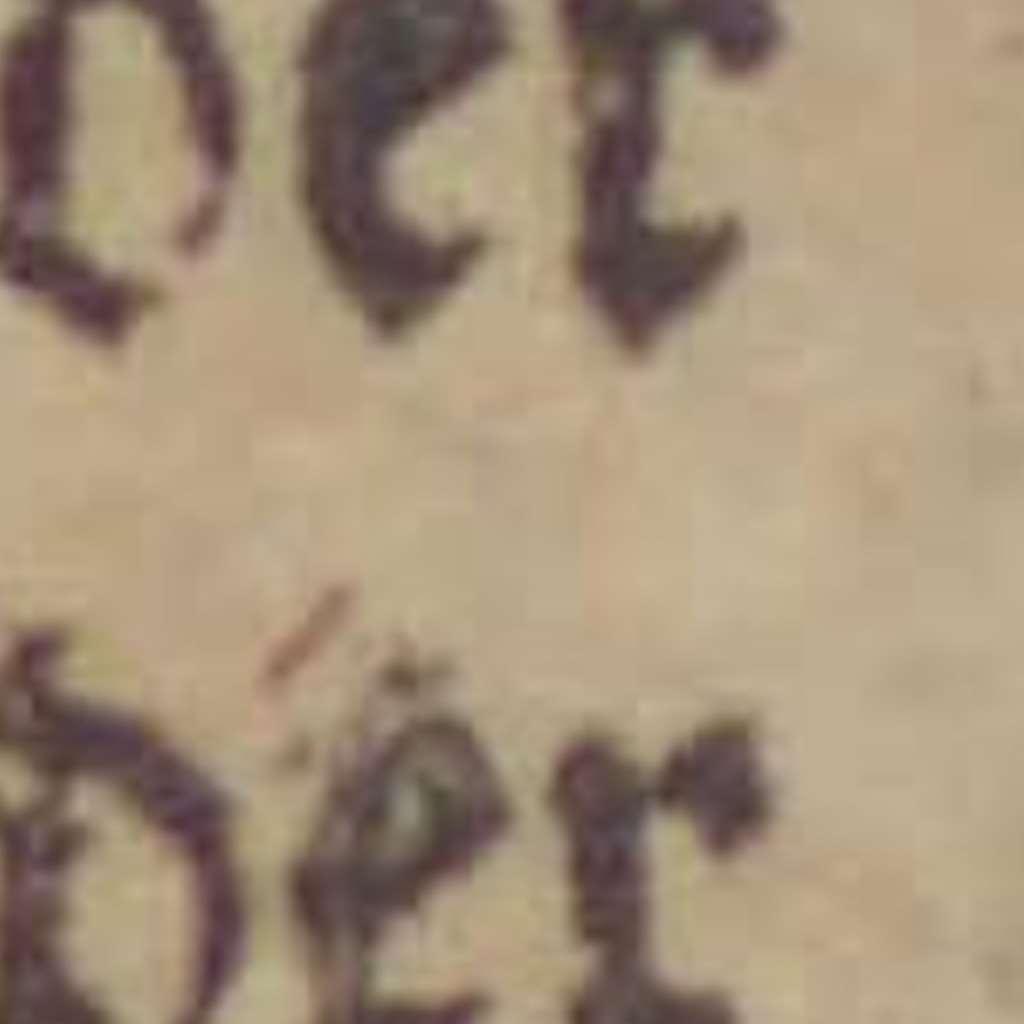 der
der